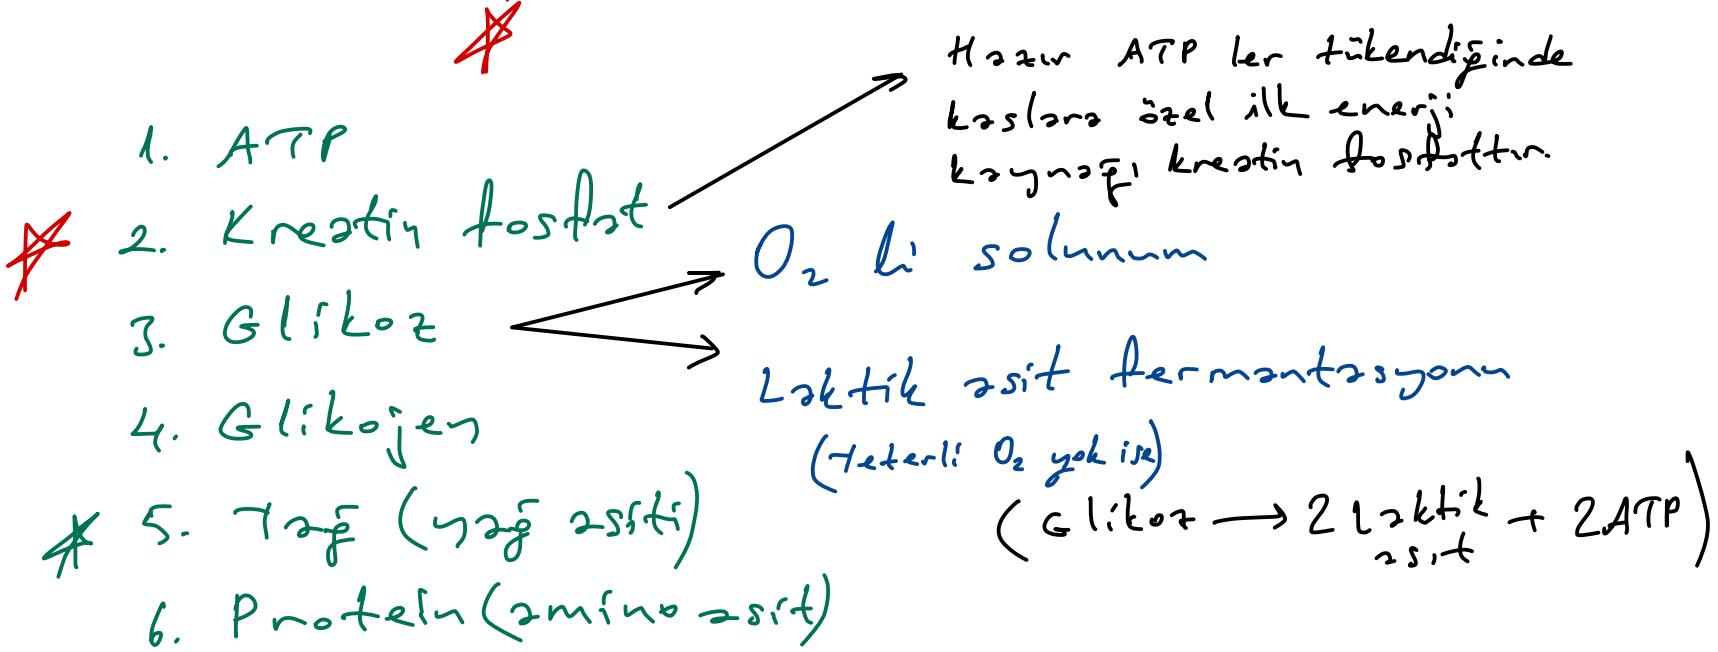 1. ATP
2. Kreatin fosfat
3. Glikoz
4. Glikojen
5. Yağ (yağ asiti)
6. Protein (amino asit)
Hazır ATP ler tükendiğinde
kaslara özel ilk enerji
kaynağı kreatin fosfattır.
O₂ li solunum
Laktik asit fermantasyonu
(Yeterli O₂ yok ise)
(Glikoz → 2 Laktik asit + 2ATP)